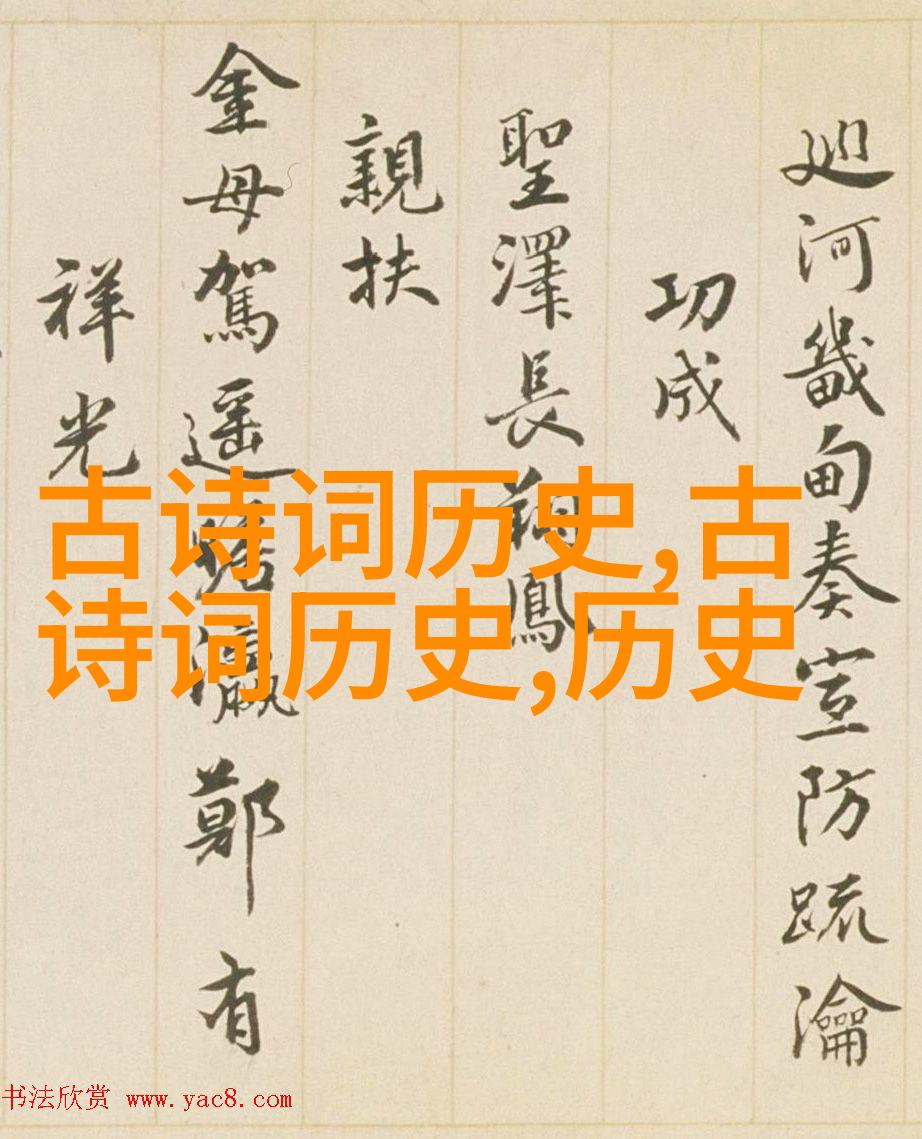 廵河畿甸奏宣防疏瀹
功成
聖澤長翔鳳
親扶
金母駕遥瀛鄭有
祥光
古诗词历史,古
诗词历史,历史
书法欣赏 www.yac8.com